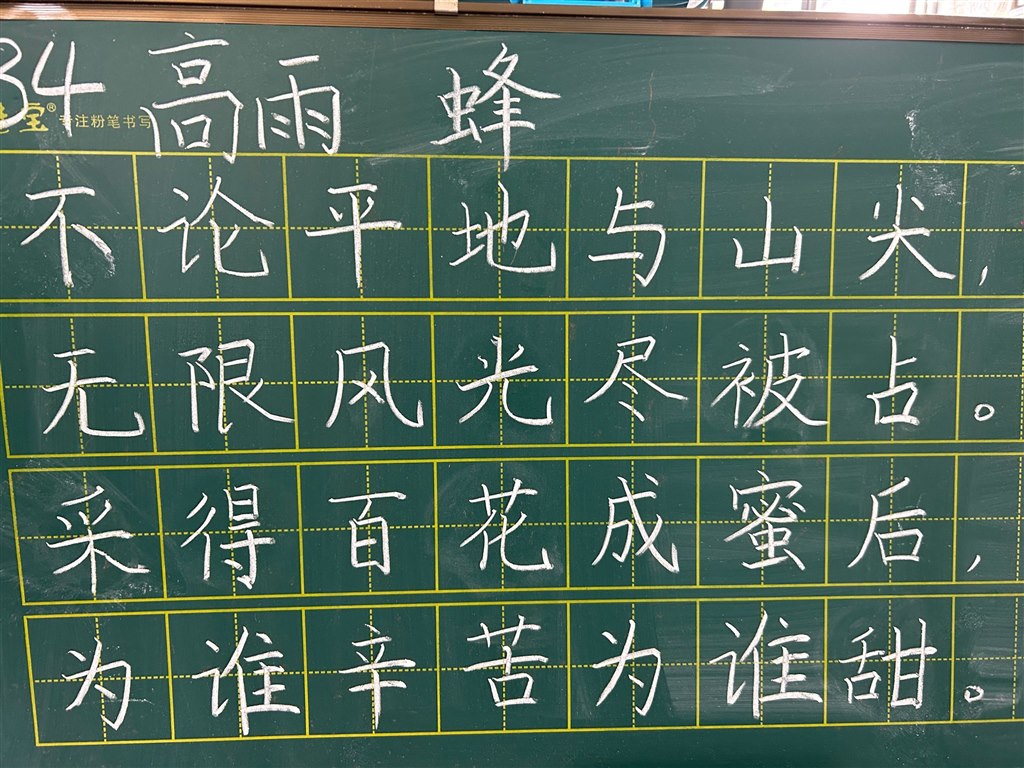 34 高雨 蜂
堂® 专注粉笔书写
不论平地与山尖，
无限风光尽被占。
采得百花成蜜后，
为谁辛苦为谁甜。